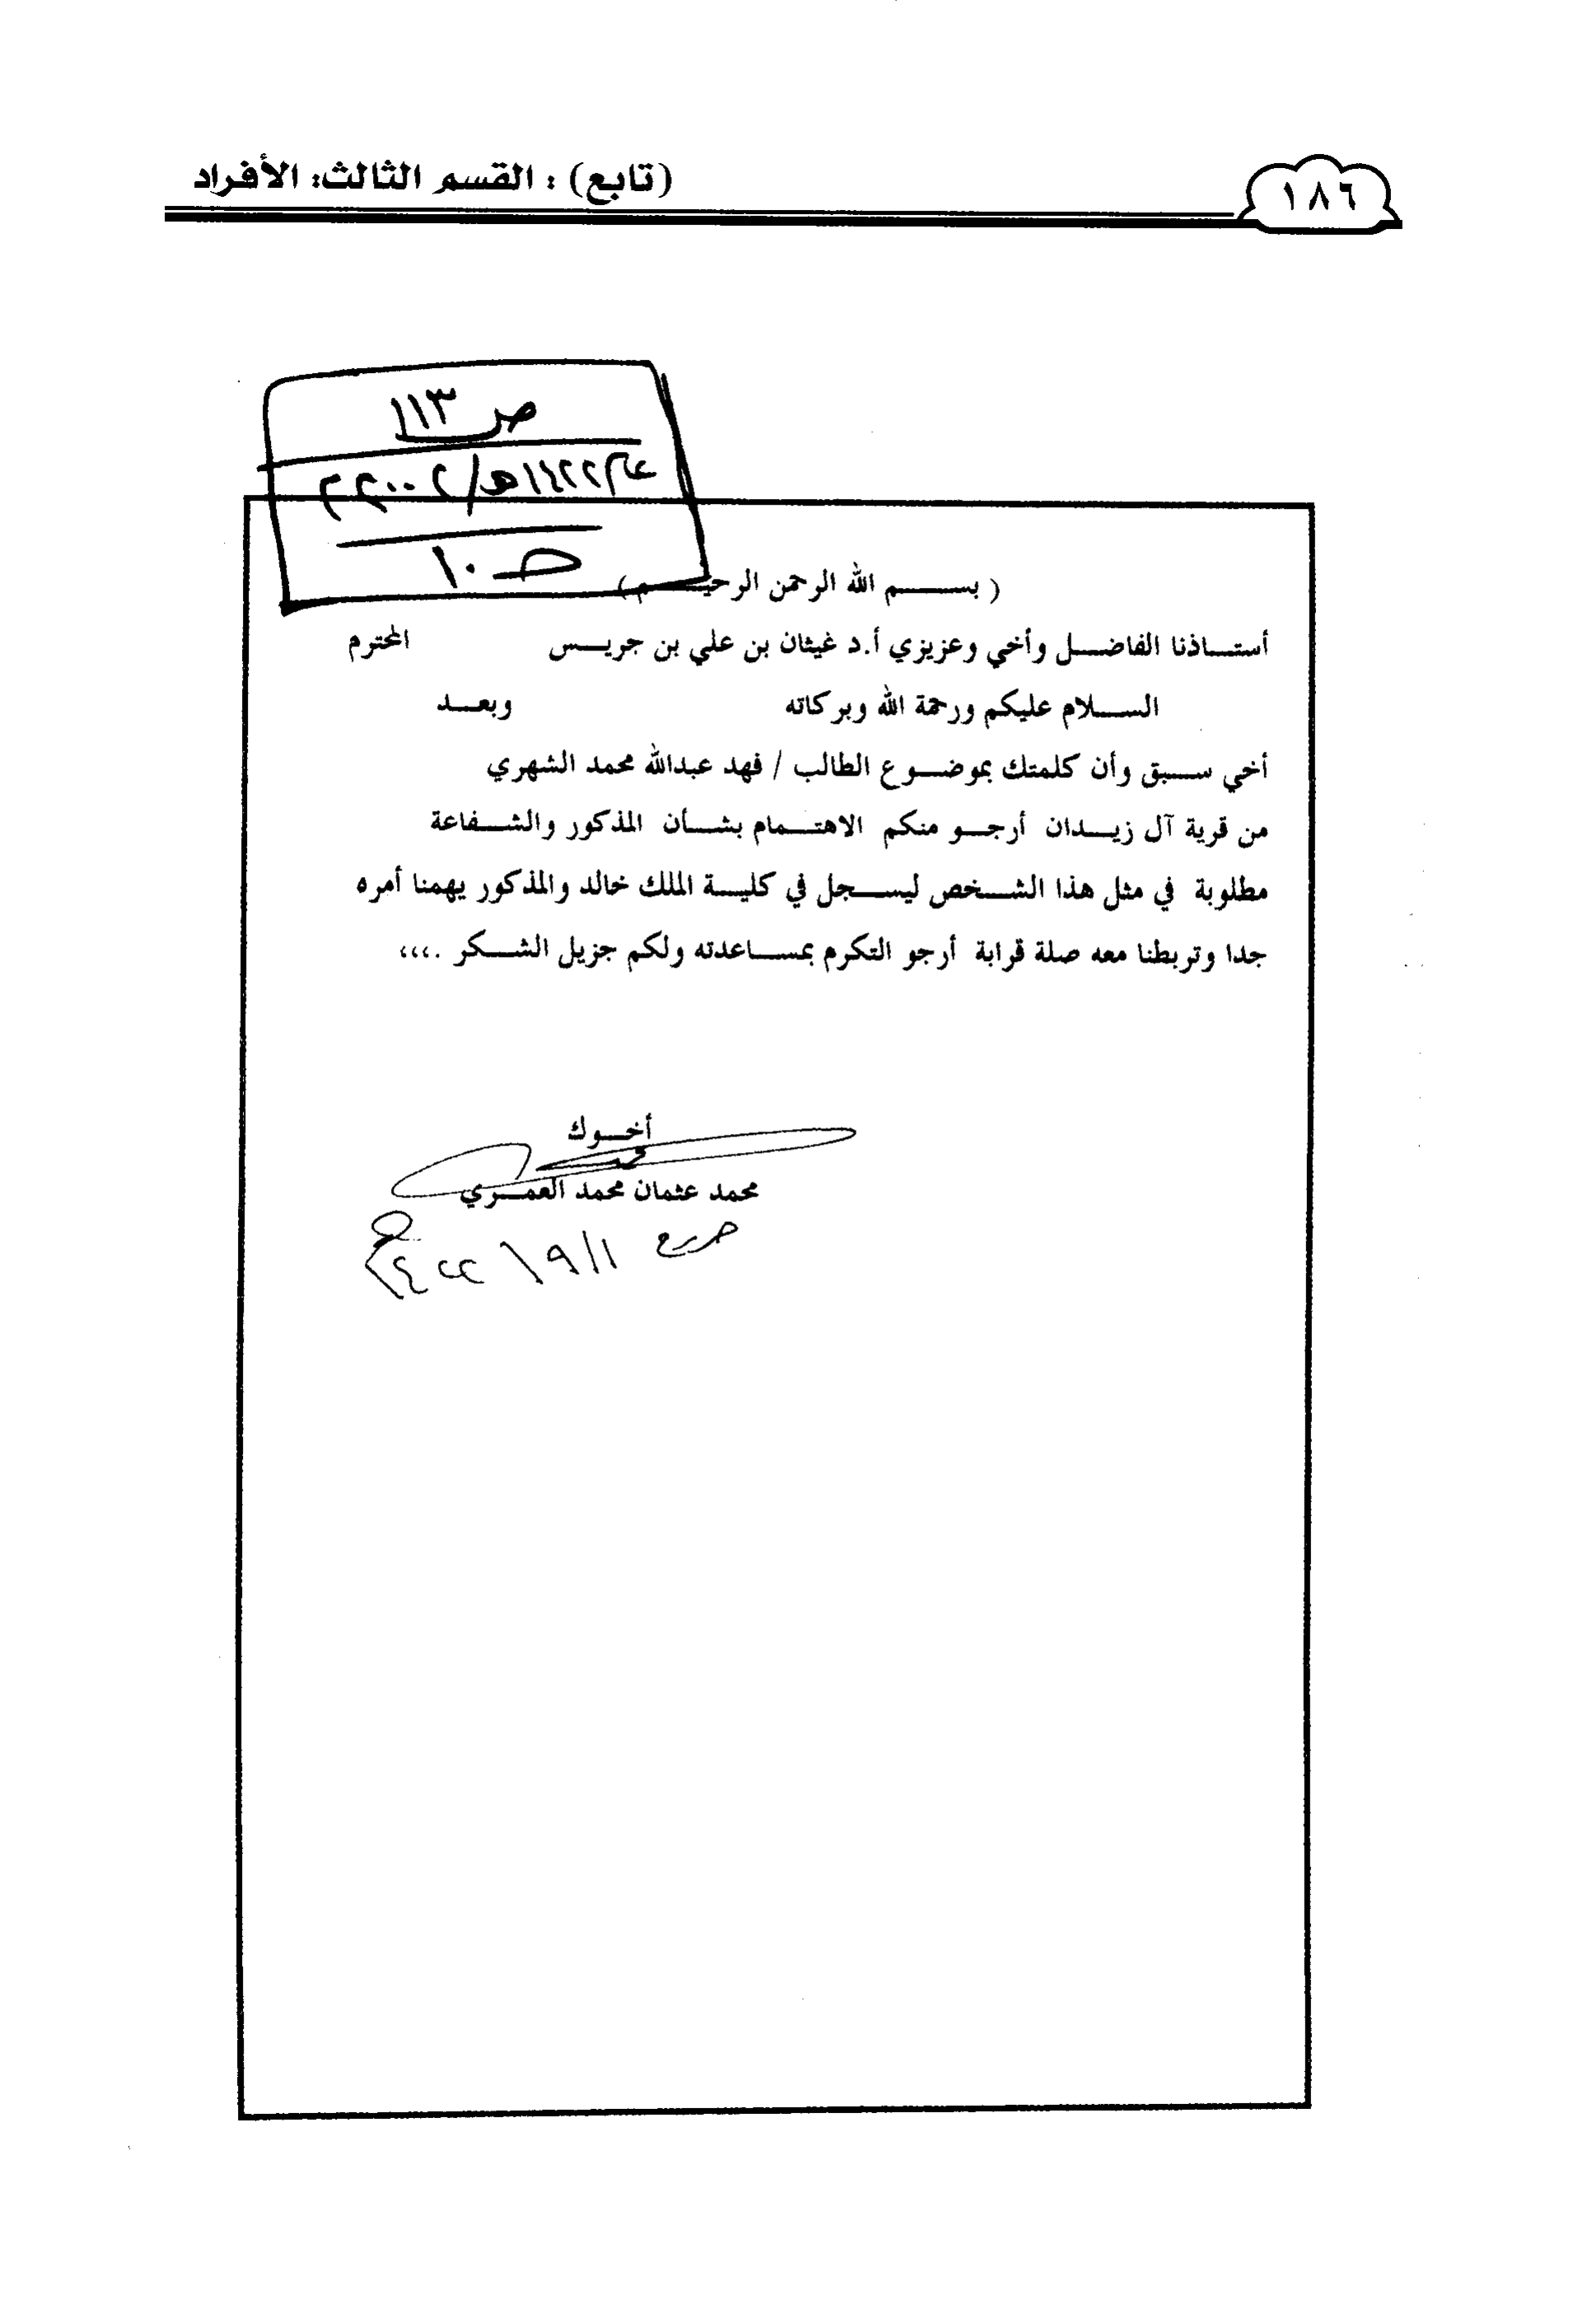 ١٨٦
(تابع) : القسم الثالث: الأفراد
ص ١١٣
عام ١٤٢٢هـ/ ٢٠٠٢م
ص ١٠
( بسم الله الرحمن الرحيم )
أستاذنا الفاضل وأخي وعزيزي أ.د غيثان بن علي بن جريس المحترم
السلام عليكم ورحمة الله وبركاته وبعد
أخي سبق وأن كلمتك بموضوع الطالب / فهد عبدالله محمد الشهري
من قرية آل زيدان أرجو منكم الاهتمام بشأن المذكور والشفاعة
مطلوبة في مثل هذا الشخص ليسجل في كلية الملك خالد والمذكور يهمنا أمره
جدا وتربطنا معه صلة قرابة أرجو التكرم بمساعدته ولكم جزيل الشكر .،،،
أخوك
محمد عثمان محمد العمري
١/ ٩/ ١٤٢٢هـ